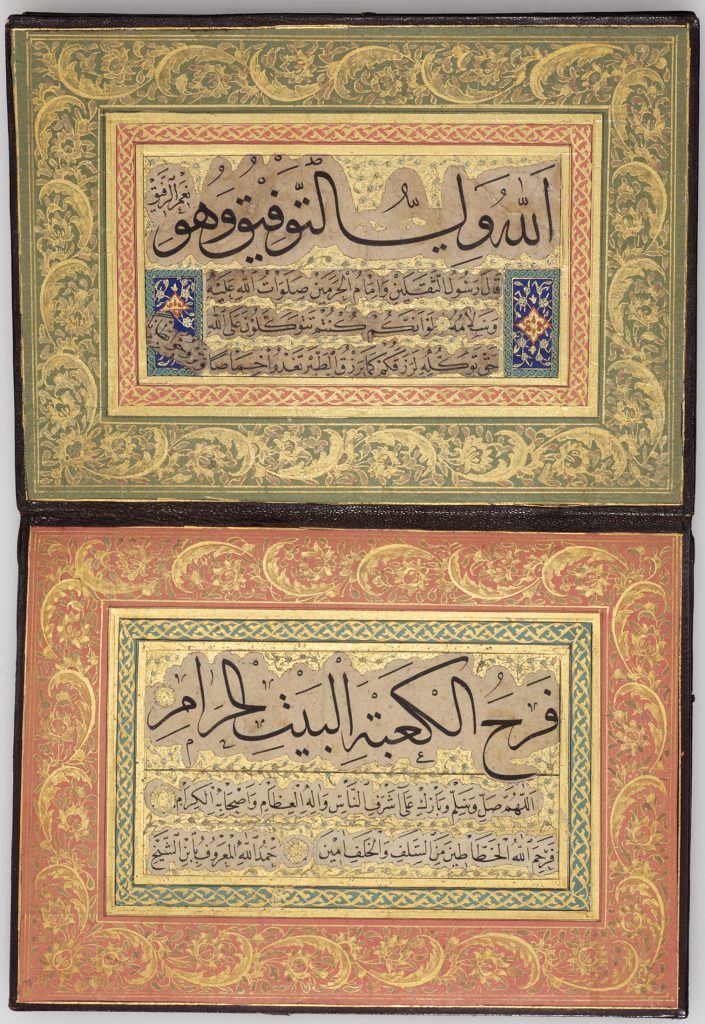 الله ولي التوفيق وهو نعم الرفيق
قال رسول الثقلين وامام الحرمين صلوات الله عليه
وسلامه لو انكم كنتم تتوكلون على الله
حق توكله لرزقكم كما يرزق الطير تغدوا خماصا
فرح الكعبة البيت الحرام
اللهم صل وسلم وبارك على اشرف الناس واله العظام واصحابه الكرام
فرحم الله الخطاطين من السلف والخلف امين حمد الله المعروف بابن الشيخ